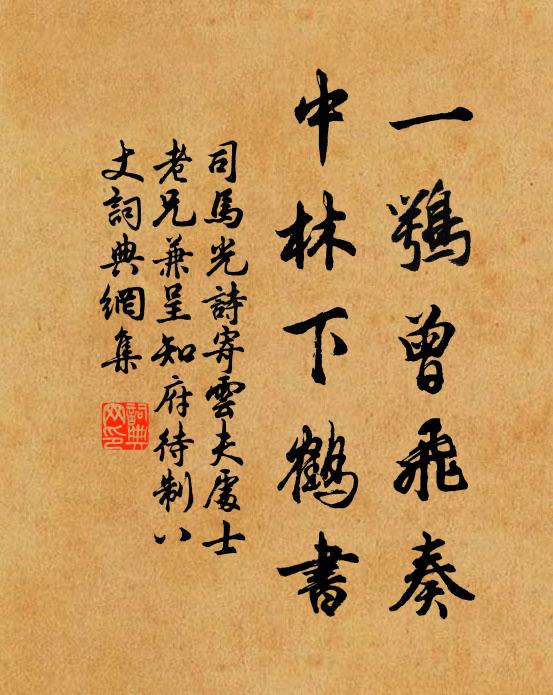 一鶚曾飛奏
中林下鶴書
司馬光詩寄雲夫處士
老兄兼呈知府待制八
丈詞典網集
詞典網印